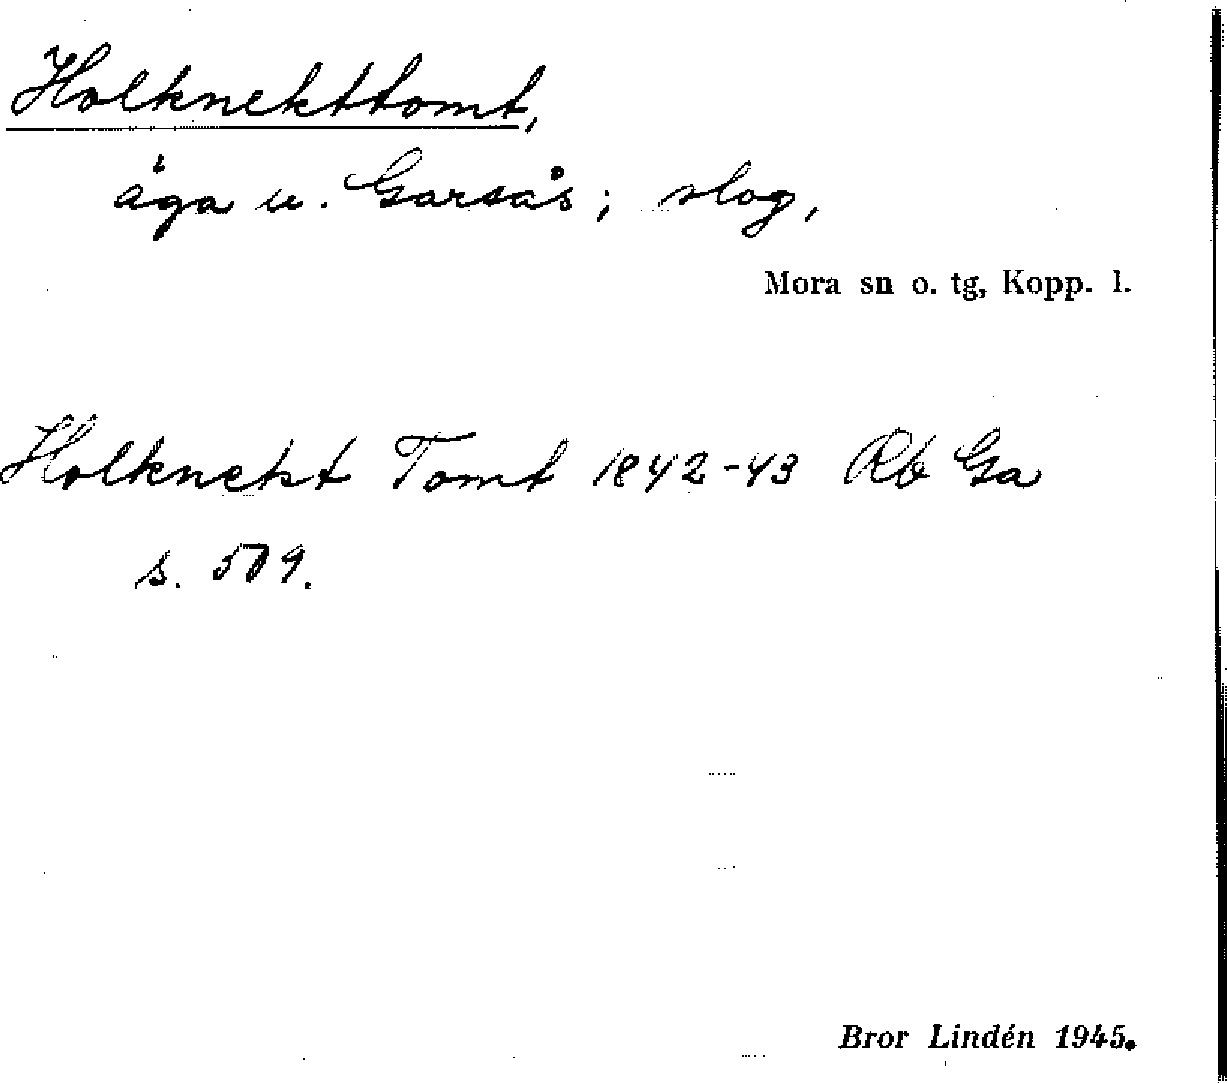 Holknekttomt,
äga u. Garsås; slog,
Mora sn o. tg, Kopp. l.
Holknekt Tomt 1842-43 Rb Ga
s. 579.
Bror Lindén 1945.